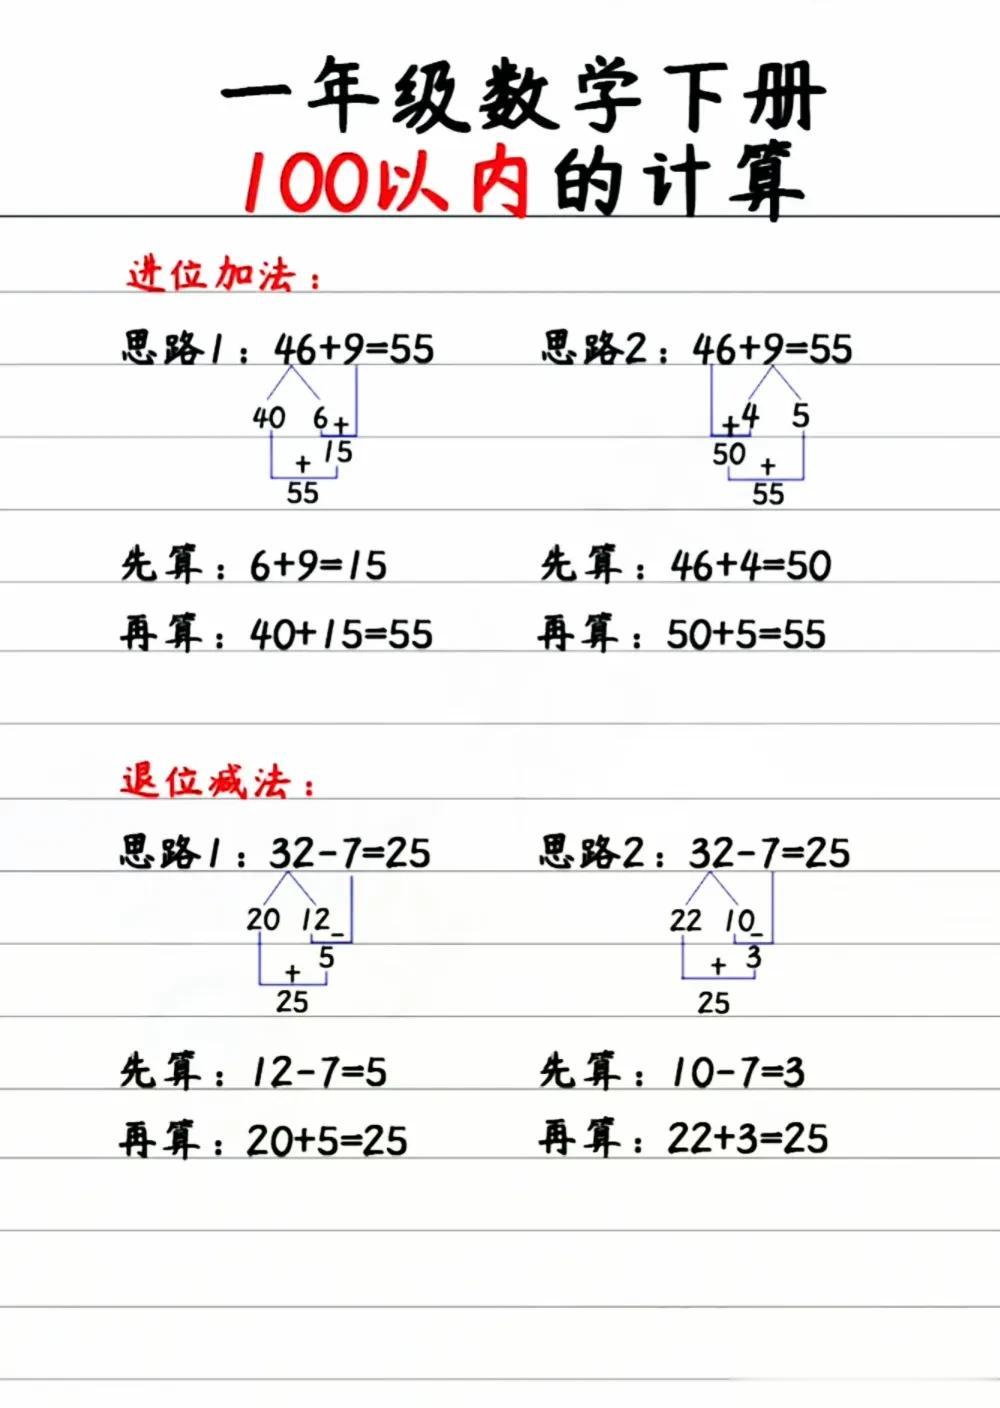 一年级数学下册
100以内的计算
进位加法：
思路1：46+9=55
40 6+
15
+
55
先算：6+9=15
再算：40+15=55
思路2：46+9=55
+4 5
50 +
55
先算：46+4=50
再算：50+5=55
退位减法：
思路1：32-7=25
20 12-
5
+
25
先算：12-7=5
再算：20+5=25
思路2：32-7=25
22 10-
+ 3
25
先算：10-7=3
再算：22+3=25